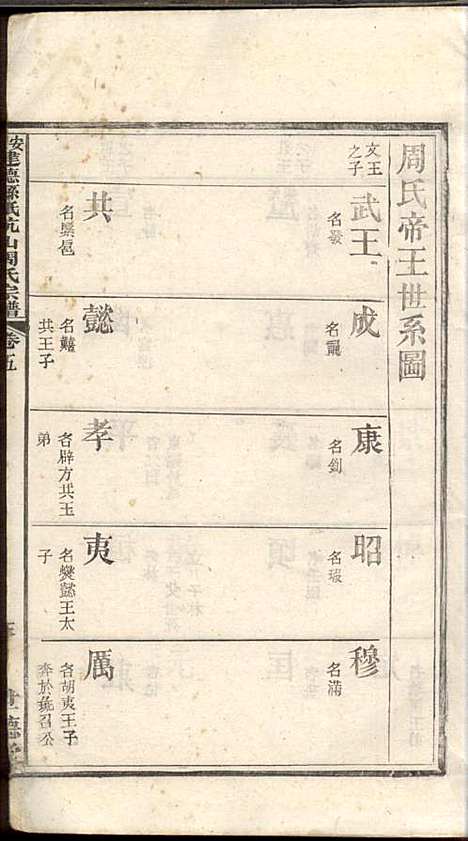 周氏帝王世系圖
文王
之子
武王
名發
成
名誦
康
名釗
昭
名瑕
穆
名滿
共
名繄扈
懿
名囏
共王子
孝
名辟方共王
弟
夷
名燮懿王太
子
厲
名胡夷王子
奔於彘召公
建德孫氏坑山周氏宗譜
卷五